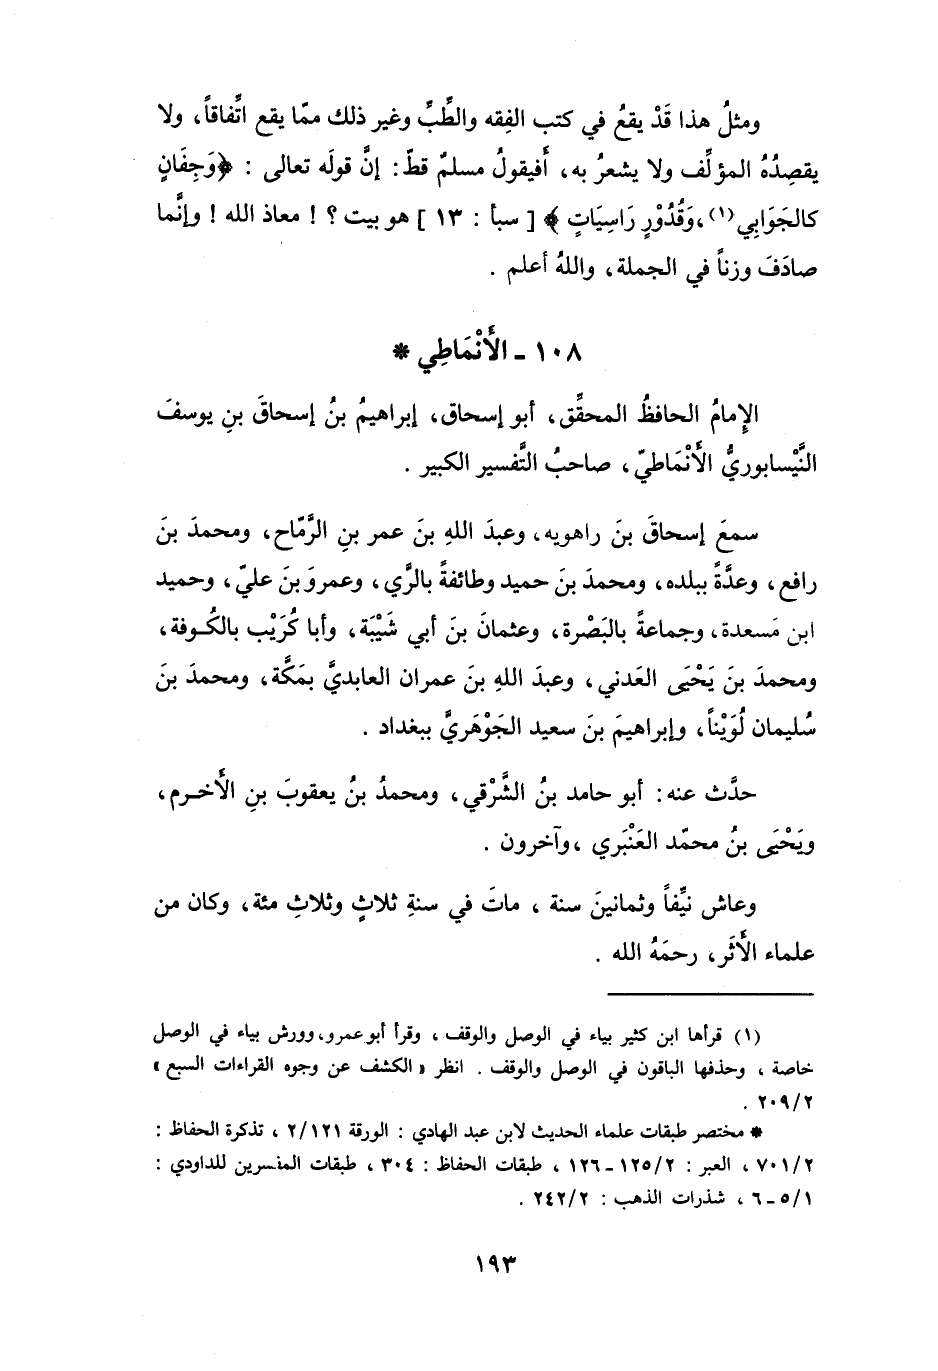 ومثلُ هذا قَدْ يقعُ في كتب الفِقه والطِّبِّ وغير ذلك ممّا يقع اتِّفاقاً، ولا
يقصِدُهُ المؤلِّف ولا يشعرُ به، أَفيقولُ مسلمٌ قطّ: إنَّ قولَه تعالى : ﴿وَجِفَانٍ
كالجَوَابِي(١)، وَقُدُوْرٍ رَاسِيَاتٍ ﴾ [ سبأ : ١٣ ] هو بيت ؟ ! معاذ الله ! وإنَّما
صادَفَ وزناً في الجملة، واللهُ أعلم .
١٠٨ - الأَنْمَاطِي *
الإِمامُ الحافظُ المحقِّق، أبو إسحاق، إبراهيمُ بنُ إسحاقَ بنِ يوسفَ
النَّيْسابوريُّ الأَنْمَاطيّ، صاحبُ التَّفسير الكبير .
سمعَ إسحاقَ بنَ راهويه، وعبدَ اللهِ بنَ عمر بنِ الرَّمّاح، ومحمدَ بنَ
رافع، وعدَّةً ببلده، ومحمدَ بنَ حميد وطائفةً بالرَّي، وعمروَ بنَ عليّ، وحميد
ابن مَسعدة، وجماعةً بالبَصْرة، وعثمانَ بنَ أبي شَيْبَة، وأبا كُرَيْب بالكُوفة،
ومحمدَ بنَ يَحْيَى العَدني، وعبدَ اللهِ بنَ عمران العابديَّ بمَكَّة، ومحمدَ بنَ
سُليمان لُوَيْناً، وإبراهيمَ بنَ سعيد الجَوْهَريَّ ببغداد .
حدَّث عنه: أبو حامد بنُ الشَّرْقي، ومحمدُ بنُ يعقوبَ بنِ الأَخرم،
ويَحْيَى بنُ محمّد العَنْبَري ،وآخرون .
وعاش نيِّفاً وثمانينَ سنة ، ماتَ في سنةِ ثلاثٍ وثلاثِ مئة، وكان من
علماء الأَثَر، رحمَهُ الله .
(١) قرأها ابن كثير بياء في الوصل والوقف ، وقرأ أبو عمرو، وورش بياء في الوصل
خاصة ، وحذفها الباقون في الوصل والوقف . انظر « الكشف عن وجوه القراءات السبع »
٢٠٩/٢ .
* مختصر طبقات علماء الحديث لابن عبد الهادي : الورقة ٢/١٢١ ، تذكرة الحفاظ :
٧٠١/٢ ، العبر : ١٢٥/٢ - ١٢٦ ، طبقات الحفاظ : ٣٠٤ ، طبقات المفسرين للداودي :
٥/١ - ٦ ، شذرات الذهب : ٢٤٢/٢ .
١٩٣